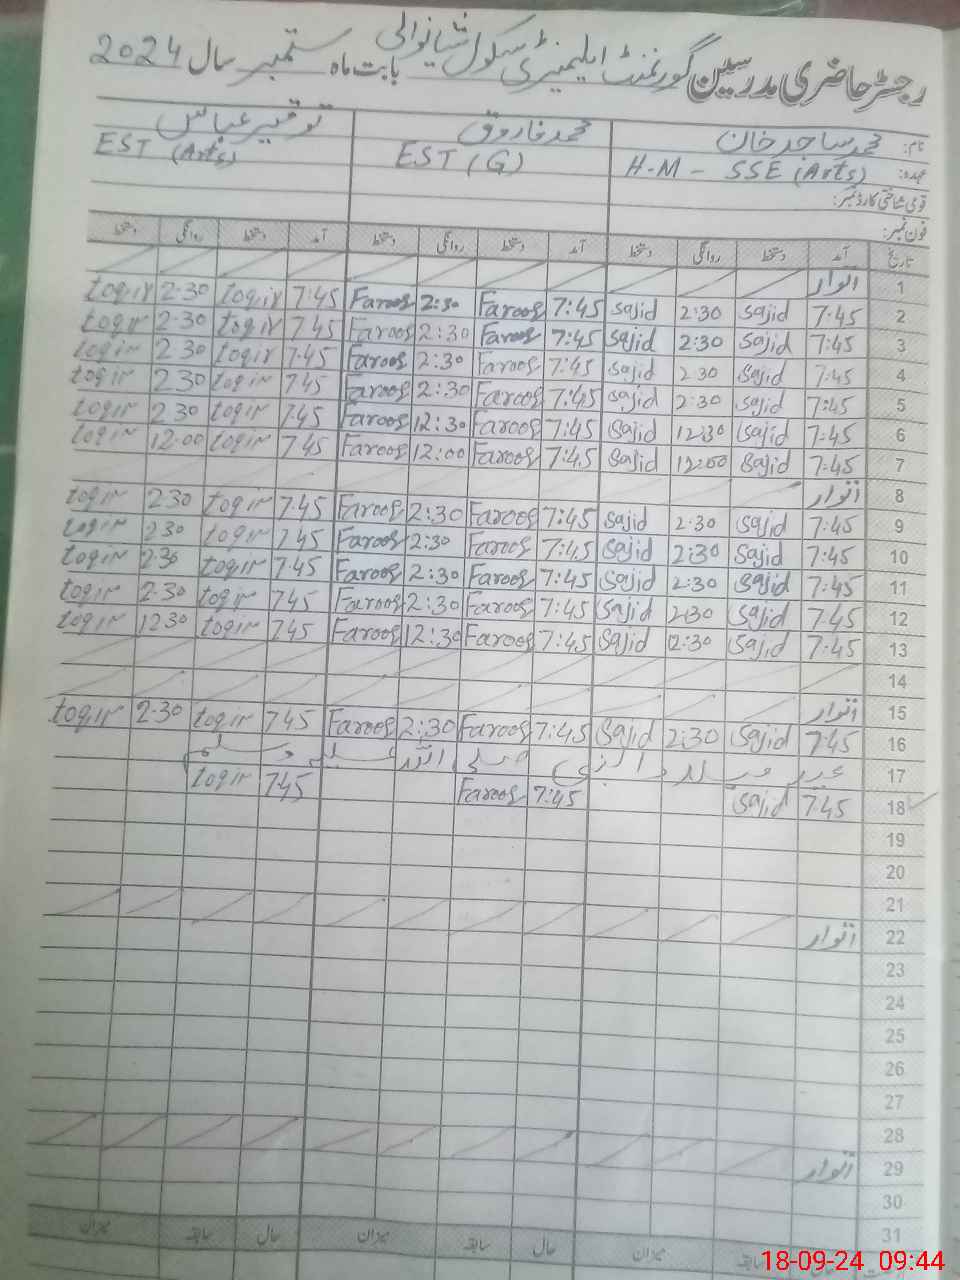 رجسٹر حاضری مدرسین گورنمنٹ ایلیمنٹری سکول شانوالی بابت ماہ ستمبر سال 2024
نام: محمد ساجد خان محمد فاروق توقیر عباس
عہدہ: H.M - SSE (Arts) EST (G) EST (Arts)
قومی شناختی کارڈ نمبر:
فون نمبر:
تاریخ آمد دستخط روانگی دستخط آمد دستخط روانگی دستخط آمد دستخط روانگی دستخط
1 اتوار
2 7:45 Sajid 2:30 Sajid 7:45 Farooq 2:30 Farooq 7:45 toqir 2:30 toqir
3 7:45 Sajid 2:30 Sajid 7:45 Farooq 2:30 Farooq 7.45 toqir 2.30 toqir
4 7:45 Sajid 2:30 Sajid 7:45 Farooq 2:30 Farooq 7.45 toqir 2.30 toqir
5 7:45 Sajid 2:30 Sajid 7:45 Farooq 2:30 Farooq 7.45 toqir 2.30 toqir
6 7:45 Sajid 12:30 Sajid 7:45 Farooq 12:30 Farooq 7.45 toqir 2.30 toqir
7 7:45 Sajid 12:00 Sajid 7:45 Farooq 12:00 Farooq 7.45 toqir 12.00 toqir
8 اتوار
9 7:45 Sajid 2:30 Sajid 7:45 Farooq 2:30 Farooq 7.45 toqir 2.30 toqir
10 7:45 Sajid 2:30 Sajid 7:45 Farooq 2:30 Farooq 7.45 toqir 2.30 toqir
11 7:45 Sajid 2:30 Sajid 7:45 Farooq 2:30 Farooq 7.45 toqir 2.30 toqir
12 7:45 Sajid 2:30 Sajid 7:45 Farooq 2:30 Farooq 745 toqir 2.30 toqir
13 7:45 Sajid 12:30 Sajid 7:45 Farooq 12:30 Farooq 745 toqir 1230 toqir
14
15 اتوار
16 7:45 Sajid 2:30 Sajid 7:45 Farooq 2:30 Farooq 745 toqir 2.30 toqir
17 عید میلاد النبی صلی اللہ علیہ وسلم
18 7:45 Sajid 7:45 Farooq 7.45 toqir
19
20
21
22 اتوار
23
24
25
26
27
28
29 اتوار
30
31
حال سابقہ میزان حال سابقہ میزان
18-09-24 09:44